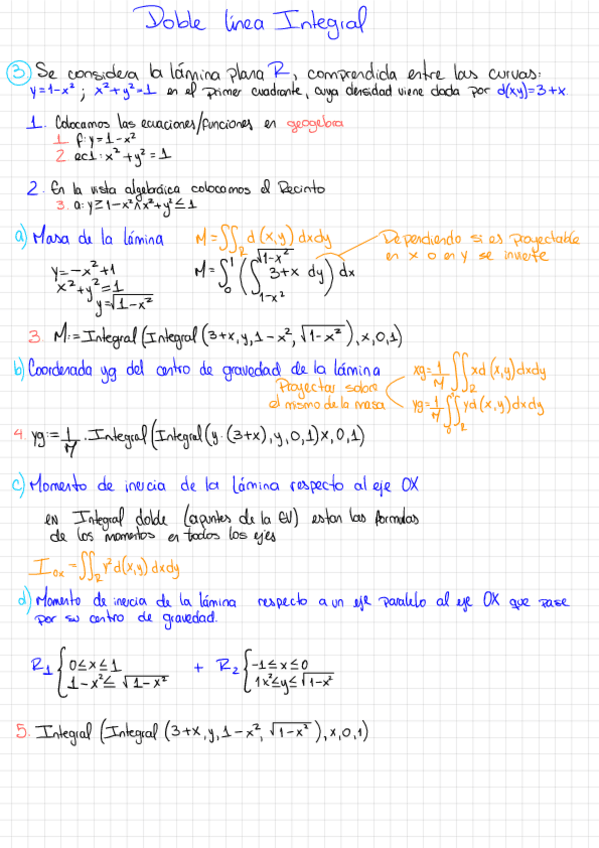 Doble línea Integral
③ Se considera la lámina plana R, comprendida entre las curvas:
y=1-x² ; x²+y²=1 en el primer cuadrante, cuya densidad viene dada por d(xy)=3+x.
1. Colocamos las ecuaciones/funciones en geogebra
1 f: y=1-x²
2 ec1: x²+y²=1
2. En la vista algebráica colocamos el Recinto
3. a: y≥1-x²∧x²+y²≤1
a) Masa de la lámina M=∬_R d(x,y)dxdy
Dependiendo si es proyectable
en x o en y se invierte
y=-x²+1
x²+y²=1
y=√1-x²
M=∫₀¹(∫_{1-x²}^{√1-x²} 3+x dy) dx
3. M:=Integral(Integral(3+x,y,1-x²,√1-x²),x,0,1)
b) Coordenada yg del centro de gravedad de la lámina
Proyectar sobre
el mismo de la masa
xg=1/M ∬_R xd(x,y)dxdy
yg=1/M ∬_R yd(x,y)dxdy
4. yg:=1/M.Integral(Integral(y.(3+x),y,0,1)x,0,1)
c) Momento de inercia de la lámina respecto al eje OX
en Integral doble (apuntes de la EV) estan las formulas
de los momentos en todos los ejes
I_ox=∬_R y²d(x,y)dxdy
d) Momento de inercia de la lámina respecto a un eje paralelo al eje OX que pase
por su centro de gravedad.
R₁{0≤x≤1 + R₂{-1≤x≤0
1-x²≤ √1-x² 1x²≤y≤√1-x²
5. Integral (Integral (3+x,y,1-x²,√1-x²),x,0,1)